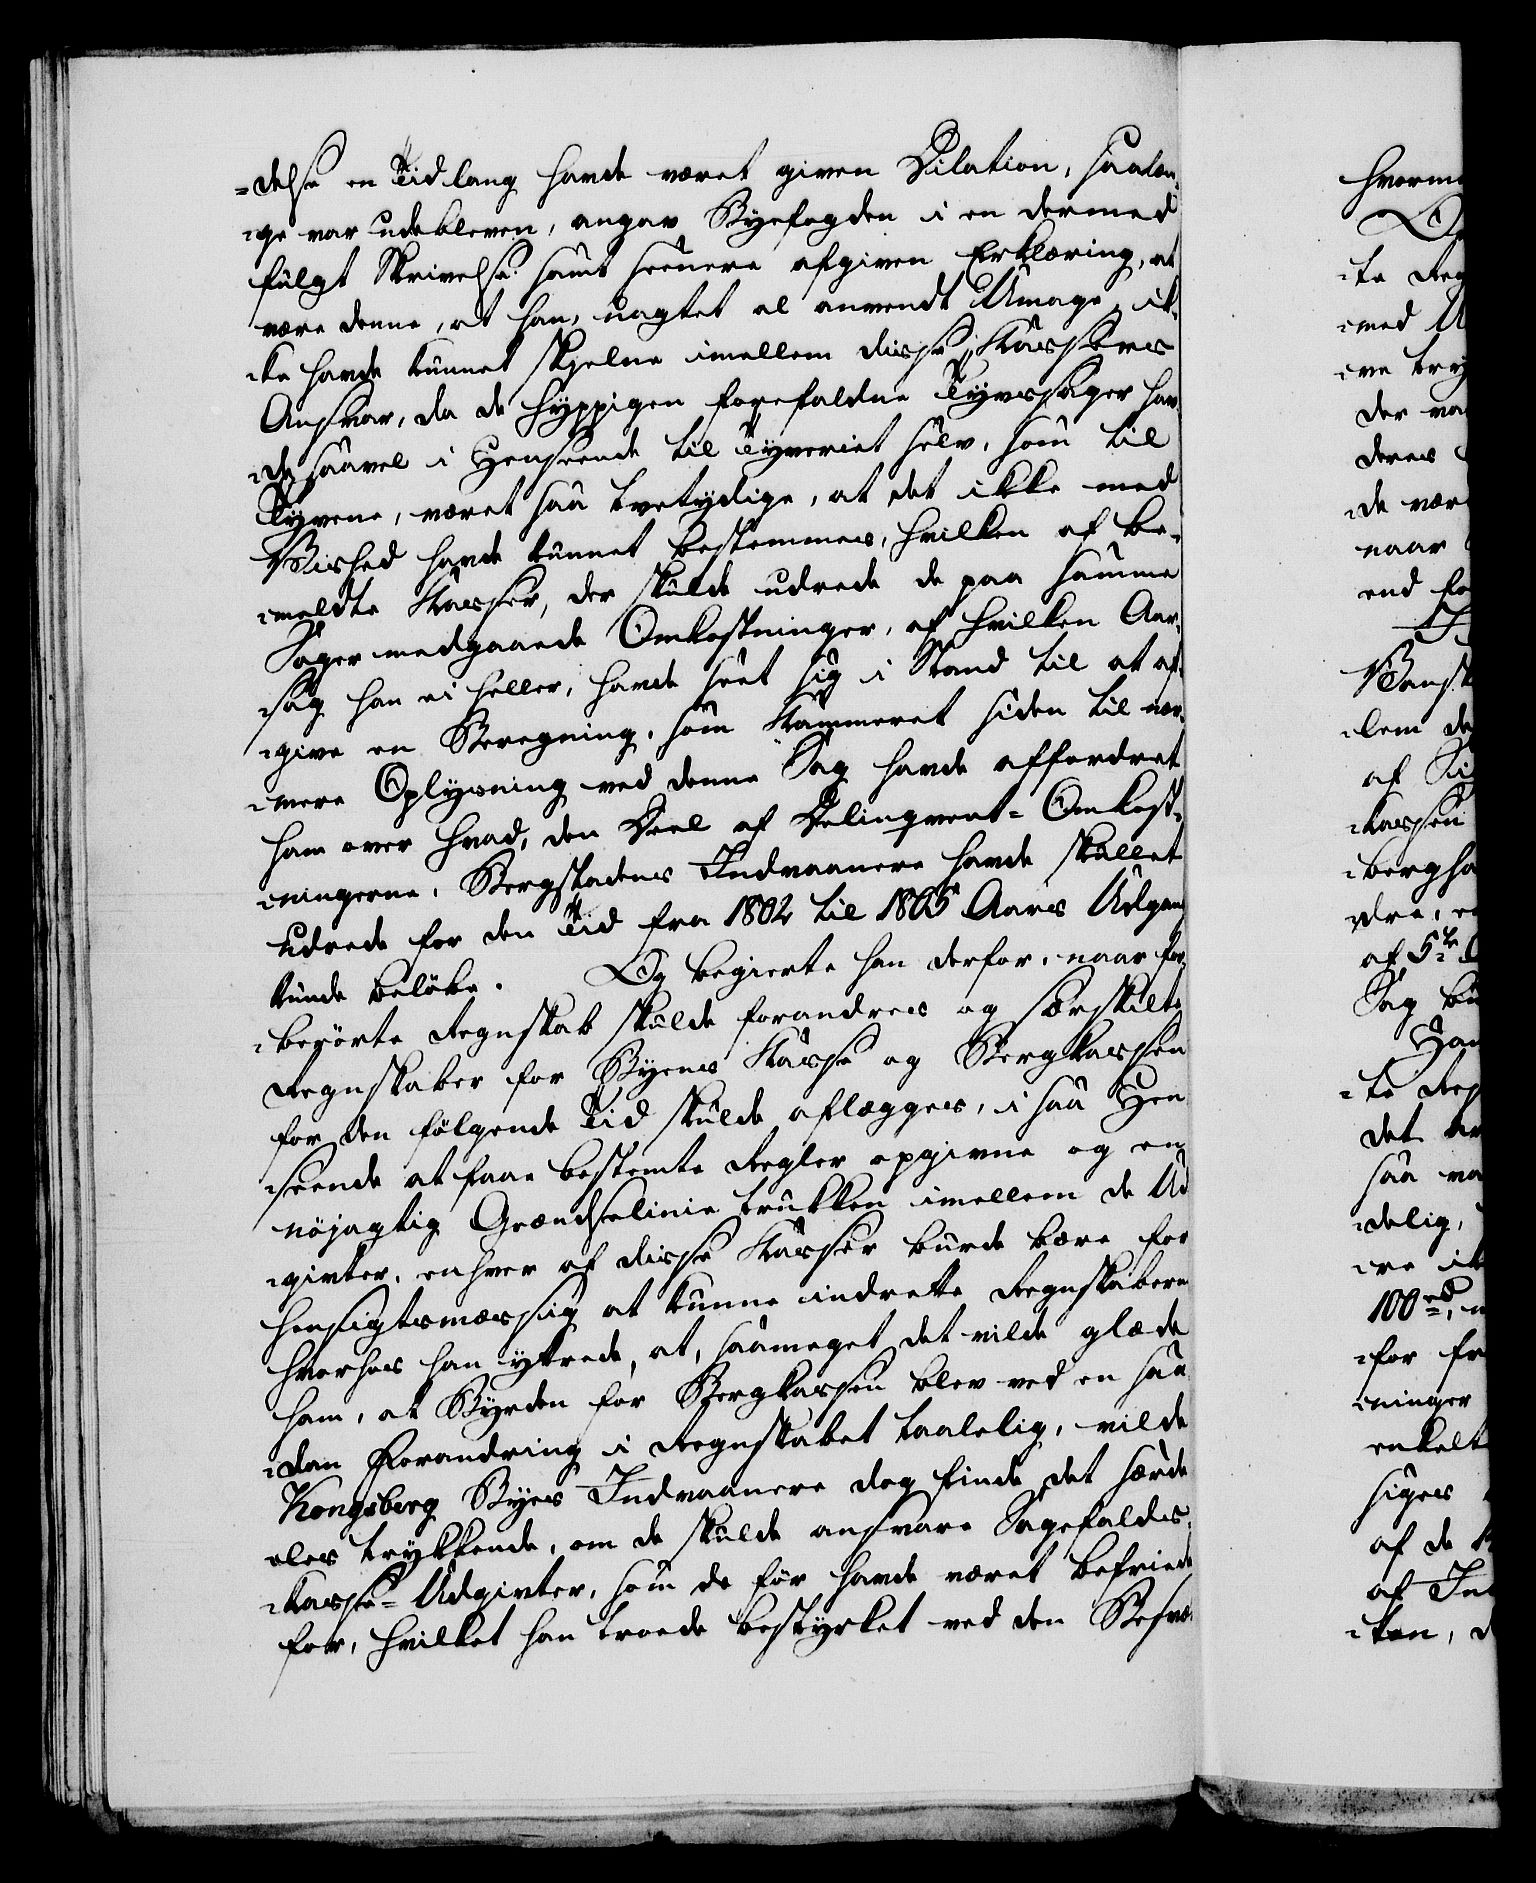 =delse en Tid lang havde været given Dilation, saalæn-
=ge var udebleven, angav Byefogden i en dermed
fulgt Skrivelse samt seenere afgiven Erklæring, at
være denne, at han, uagtet al anvendt Umage, ik-
=ke havde kunnet skjelne imellem disse Kassers
Ansvar, da de hyppigen forefaldne Tyvssager hav-
=de saavel i Henseende til Tyveriet selv, som til
Tyvene, været saa tvetydige, at det ikke med
Vished havde kunnet bestemmes, hvilken af be-
=meldte Kasser, der skulde udrede de paa samme
Sager medgaaede Omkostninger, af hvilken Aar-
=sag han ei heller, havde seet sig i Stand til at af-
=give en Beregning, som Kammeret siden til nær-
=mere Oplysning ved denne Sag havde affordret
ham over hvad, den Deel af Delinqvent-Omkost-
=ningerne, Bergstadens Indvaanere havde skullet
udrede for den Tid fra 1802 til 1805 Aars Udgang
kunde beløbe. Og begierte han derfor, naar for-
=berørte Regnskab skulde forandres og særskilte
Regnskaber for Byens Kasse og Bergkassen
for den følgende Tid skulde aflægges, i saa Hen-
=seende at faae bestemte Regler opgivne og en
nøjagtig Grændselinie trukken imellem de Ud-
=givter, enhver af disse Kasser burde bære for
hensigtsmæssig at kunne indrette Regnskaberne
hvorhos han yttrede, at, saameget det vilde glæde
ham, at Byrden for Bergkassen blev ved en saa-
=dan Forandring i Regnskabet taalelig, vilde
Kongsberg Byes Indvaanere dog finde det særde-
=les trykkende, om de skulde ansvare Sagefalds-
=kasse-Udgivter, som de før havde været befriede
for, hvilket han troede bestyrket ved den Besvæ-
hvorme
Og
=te Reg
=med U
=ne tryk
der va
deres
=de vær
naar
end fo
Vansk
=lem de
af
=kassen
=bergha
=dre, e
af 5te
Sag bu
Han
=te Reg
det
saa va
=delig,
=re ik
100 rd,
=for fr
=ninger
enkelt
siges
af de
af In
=ken, d